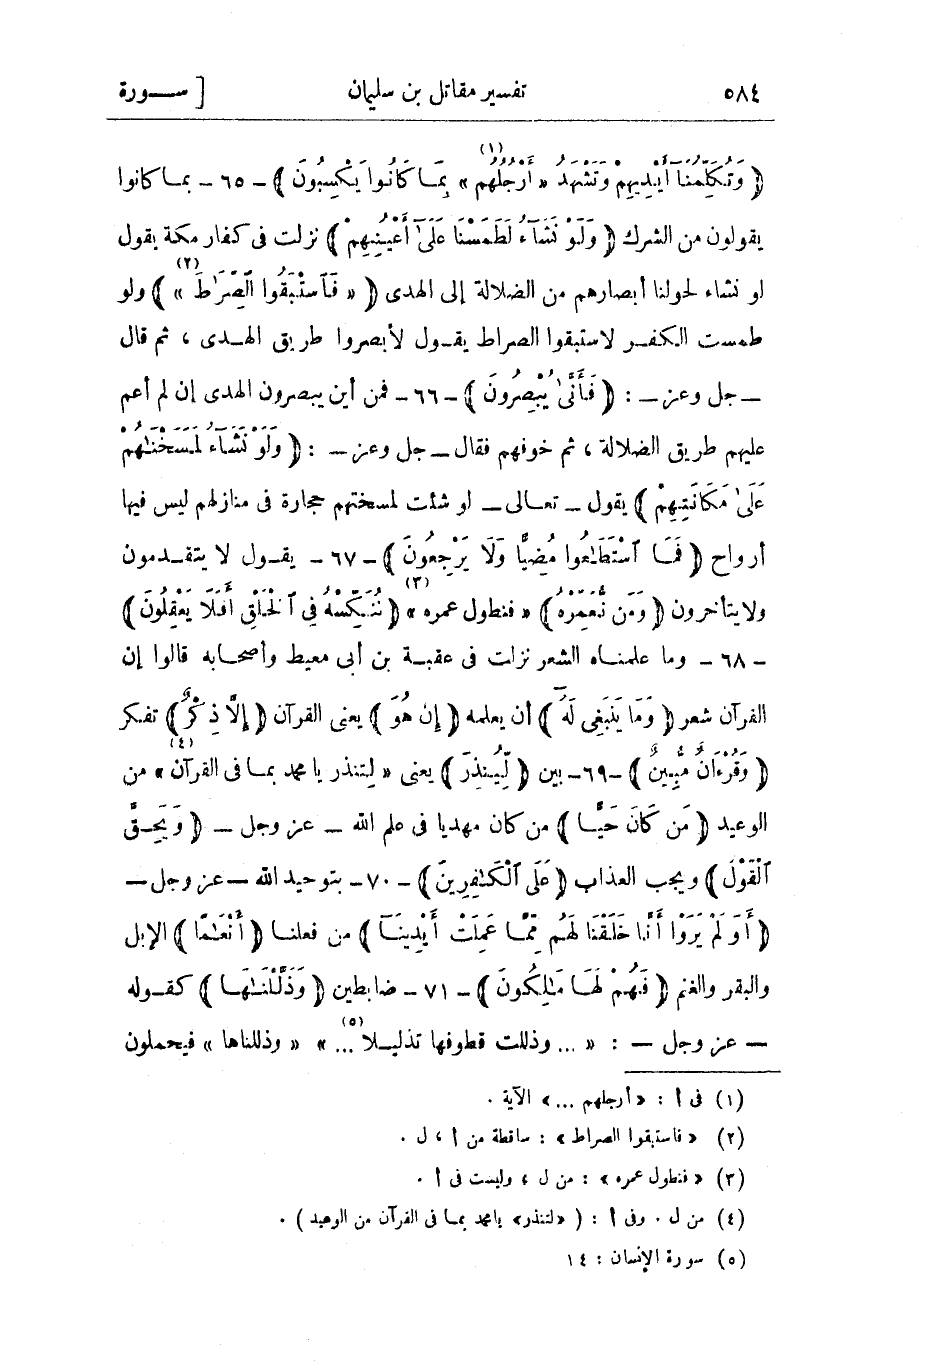 ٥٨٤ تفسير مقاتل بن سليمان [ ســـورة
﴿ وَتُكَلِّمُنَآ أَيْدِيهِمْ وَتَشْهَدُ « أَرْجُلُهُم » (١) بِمَـا كَانُوا يَكْسِبُونَ ﴾ - ٦٥ - بمـا كانوا
يقولون من الشرك ﴿ وَلَوْ نَشَآءُ لَطَمَسْنَا عَلَىٰٓ أَعْيُنِهِمْ ﴾ نزلت فى كفار مكة يقول
لو نشاء لحولنا أبصارهم من الضلالة إلى الهدى ﴿ « فَٱسْتَبَقُوا ٱلصِّرَٰطَ » (٢) ﴾ ولو
طمست الكفـر لاستبقوا الصراط يقـول لأبصروا طريق الهـدى ، ثم قال
ــ جل وعز ــ : ﴿ فَأَنَّىٰ يُبْصِرُونَ ﴾ - ٦٦ - فمن أين يبصرون الهدى إن لم أعم
عليهم طريق الضلالة ، ثم خوفهم فقال ــ جل وعز ــ : ﴿ وَلَوْ نَشَآءُ لَمَسَخْنَـٰهُمْ
عَلَىٰ مَكَانَتِهِمْ ﴾ يقول ــ تعـالى ــ لو شئت لمسختهم حجارة فى منازلهم ليس فيها
أرواح ﴿ فَمَـا ٱسْتَطَـٰعُوا مُضِيًّا وَلَا يَرْجِعُونَ ﴾ - ٦٧ - يقـول لا يتقـدمون
ولايتأخرون ﴿ وَمَن نُّعَمِّرْهُ ﴾ « فنطول عمره » (٣) ﴿ نُنَكِّسْهُ فِى ٱلْخَلْقِ أَفَلَا يَعْقِلُونَ ﴾
- ٦٨ - وما علمنـاه الشعر نزلت فى عقبـة بن أبى معيط وأصحـابه قالوا إن
القرآن شعر ﴿ وَمَا يَنۢبَغِى لَهُۥٓ ﴾ أن يعلمه ﴿ إِنْ هُوَ ﴾ يعنى القرآن ﴿ إِلَّا ذِكْرٌ ﴾ تفكر
﴿ وَقُرْءَانٌ مُّبِينٌ ﴾ -٦٩- بين ﴿ لِّيُنذِرَ ﴾ يعنى « لِتنذر يا محمد بمـا فى القرآن » (٤) من
الوعيد ﴿ مَن كَانَ حَيًّـا ﴾ من كان مهديا فى علم الله ــ عز وجل ــ ﴿ وَيَحِـقَّ
ٱلْقَوْلُ ﴾ ويجب العذاب ﴿ عَلَى ٱلْكَـٰفِرِينَ ﴾ - ٧٠ - بتوحيد الله ــ عز وجل ــ
﴿ أَوَ لَمْ يَرَوْا أَنَّا خَلَقْنَا لَهُـم مِّمَّـا عَمِلَتْ أَيْدِينَـآ ﴾ من فعلنـا ﴿ أَنْعَـٰمًا ﴾ الإبل
والبقر والغنم ﴿ فَهُـمْ لَهَـا مَـٰلِكُونَ ﴾ - ٧١ - ضابطين ﴿ وَذَلَّلْنَـٰهَـا ﴾ كقـوله
ــ عز وجل ــ : « ... وذللت قطوفها تذليـلا ... » (٥) « وذللناها » فيحملون
(١) فى أ : « أرجلهم ... » الآية .
(٢) « فاستبقوا الصراط » : ساقطة من أ ، ل .
(٣) « فنطول عمره » : من ل ، وليست فى أ .
(٤) من ل . وفى أ : ( «لتنذر» يامحمد بمـا فى القرآن من الوعيد ) .
(٥) سورة الإنسان : ١٤